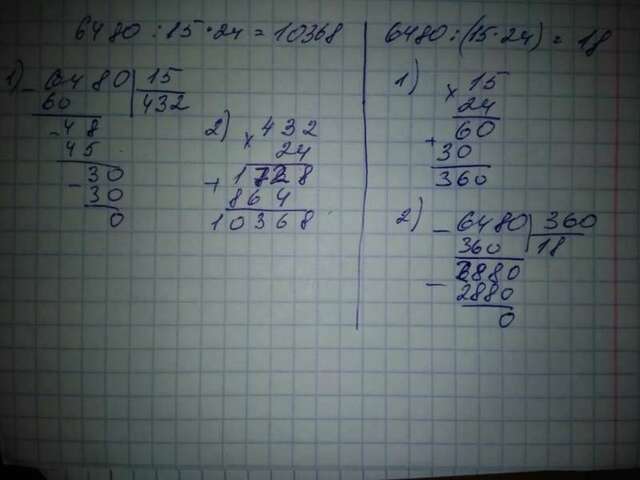 6480 : 15 · 24 = 10368
1) - 6480 | 15
60 | 432
- 48
45
- 30
30
0
2) × 432
24
+ 1728
864
10368
6480 : (15 · 24) = 18
1) × 15
24
+ 60
30
360
2) - 6480 | 360
360 | 18
- 2880
2880
0